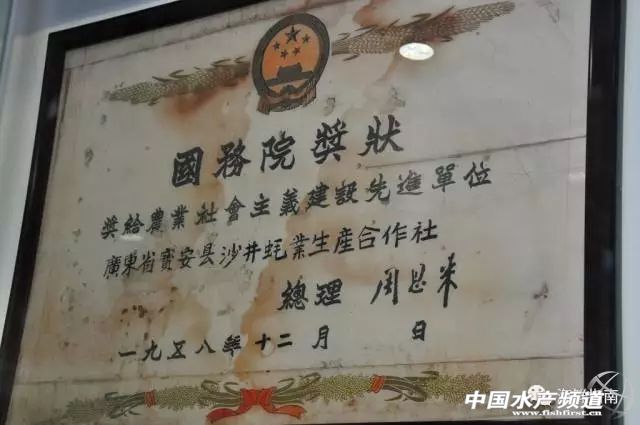 國務院獎狀
獎給農業社會主義建設先進單位
廣東省寳安县沙井蚝業生產合作社
總理 周恩來
一九五八年十二月 日
中国水产频道
www.fishfirst.cn